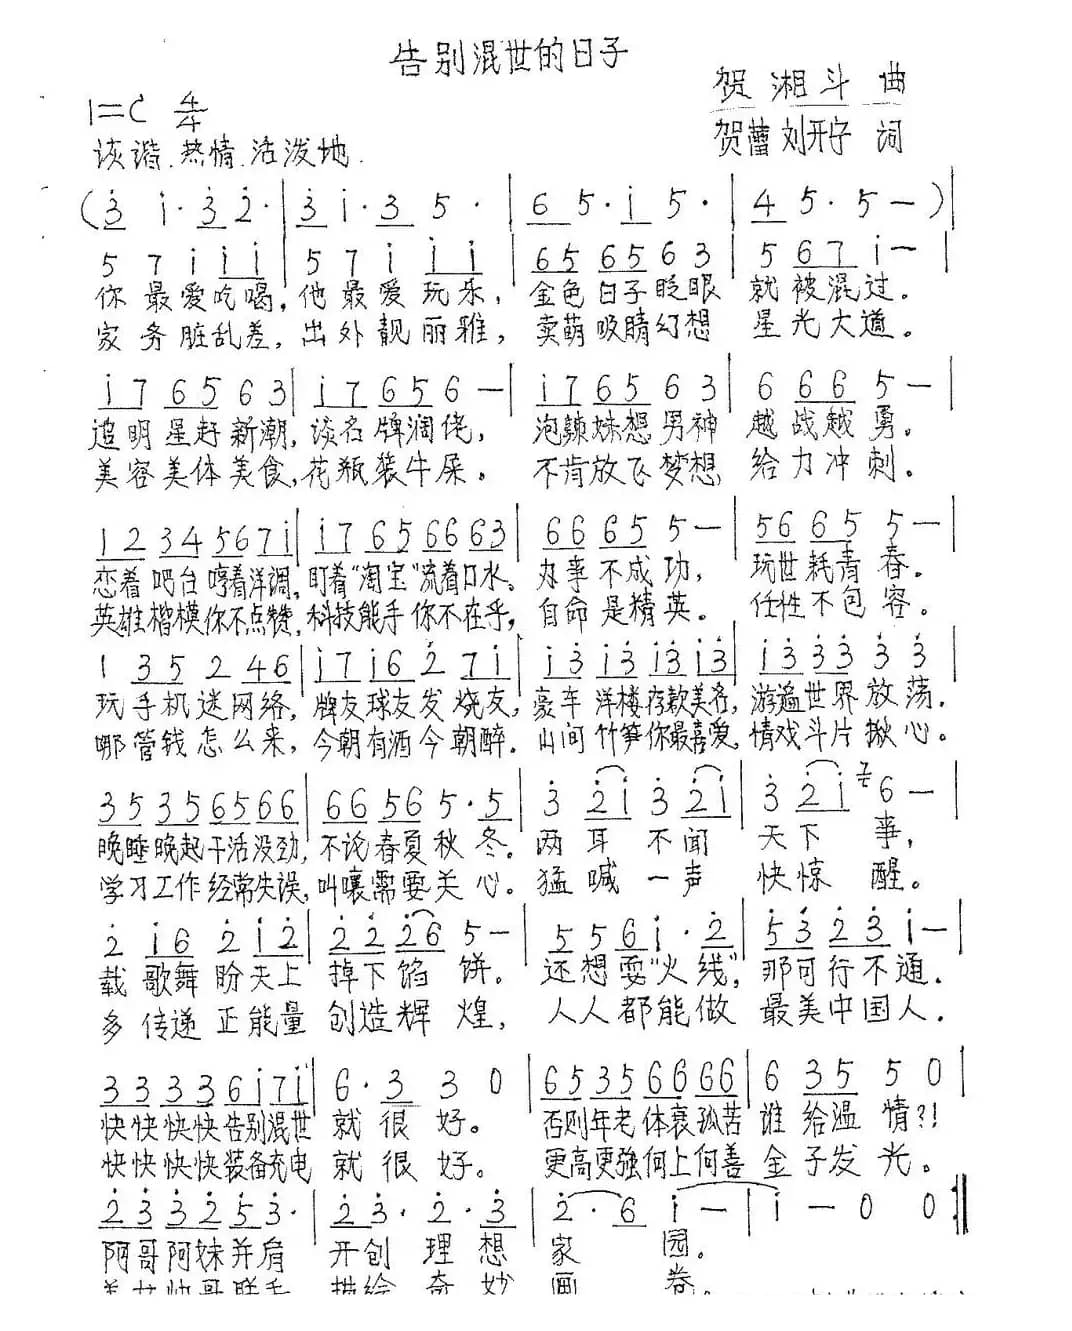 告别混世的日子
贺湘斗 曲
1=C 4/4
贺蕾 刘开宇 词
诙谐.热情.活泼地.
(3 i· 3 2·|3 i· 3 5 ·|6 5· i 5·|4 5· 5 —)|
5 7 i i i|5 7 i i i|6 5 6 5 6 3|5 6 7 i —|
你最爱吃喝,他最爱玩乐,金色日子眨眼就被混过.
家务脏乱差,出外靓丽雅,卖萌吸睛幻想星光大道.
i 7 6 5 6 3|i 7 6 5 6 —|i 7 6 5 6 3|6 6 6 5 —|
追明星赶新潮,谈名牌阔佬,泡辣妹想男神越战越勇.
美容美体美食,花瓶装牛屎.不肯放飞梦想,给力冲刺.
1 2 3 4 5 6 7 i|i 7 6 5 6 6 6 3|6 6 6 5 5 —|5 6 6 5 5 —|
恋着吧台哼着洋调,盯着"淘宝"流着口水.办事不成功,玩世耗青春.
英雄楷模你不点赞,科技能手你不在乎,自命是精英.任性不包容.
1 3 5 2 4 6|i 7 i 6 2 7 i|i 3 i 3 i 3 i 3|i 3 3 3 3 3|
玩手机迷网络,牌友球友发烧友,豪车洋楼存款美名,游遍世界放荡.
哪管钱怎么来,今朝有酒今朝醉.山间竹笋你最喜爱,情戏斗片揪心.
3 5 3 5 6 5 6 6|6 6 5 6 5 · 5|3 2 i 3 2 i|3 2 i 6 —|
晚睡晚起干活没劲,不论春夏秋冬.两耳不闻天下事,
学习工作经常失误,叫嚷需要关心.猛喊一声快惊醒.
2 i 6 2 i 2|2 2 2 6 5 —|5 5 6 i · 2|5 3 2 3 i —|
载歌舞盼天上掉下馅饼.还想耍"火线",那可行不通.
多传递正能量创造辉煌,人人都能做最美中国人.
3 3 3 3 6 i 7 i|6 · 3 3 0|6 5 3 5 6 6 6 6|6 3 5 5 0|
快快快快告别混世就很好.否则年老体衰孤苦谁给温情?!
快快快快装备充电就很好.更高更强何上何善金子发光.
2 3 3 2 5 3·|2 3· 2 · 3|2 · 6 i —|i — 0 0:‖
阿哥阿妹并肩开创理想家园.